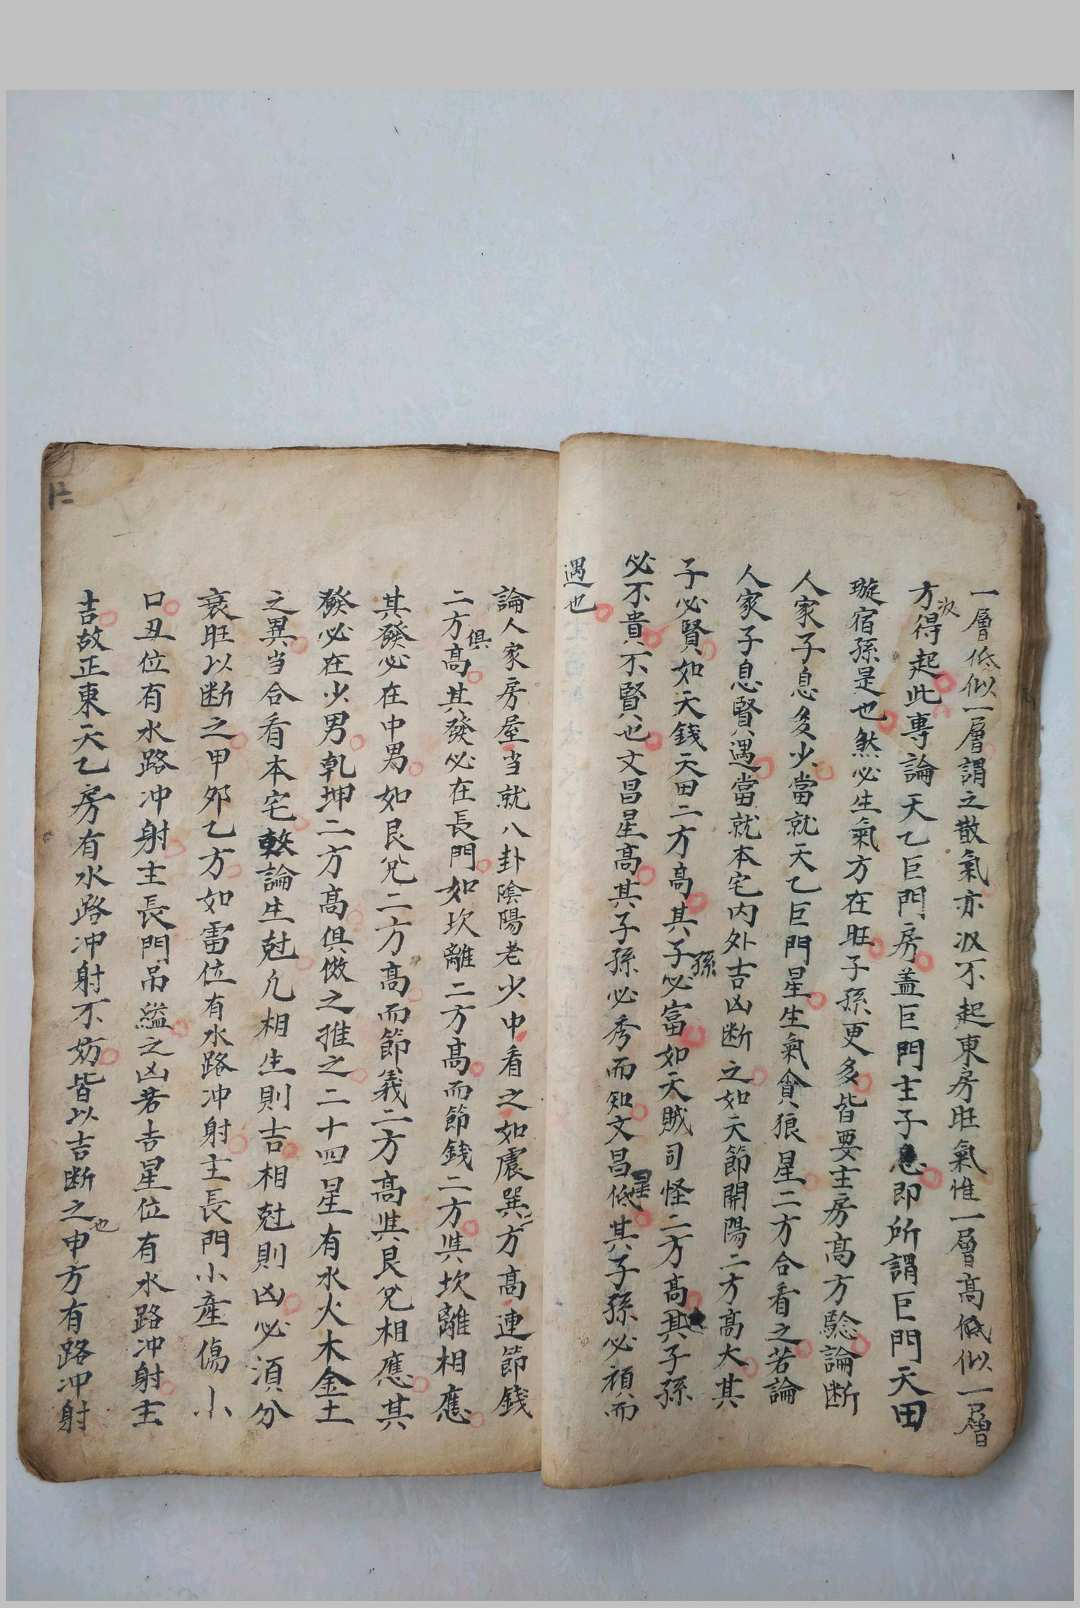 一層低似一層謂之散氣亦汲不起東房旺氣惟一層高低似一層
方汲得起此專論天乙巨門房盖巨門主子息即所謂巨門天田
璇宿孫是也然必生氣方在旺子孫更多皆要主房高方驗論断
人家子息多少當就天乙巨門星生氣貪狼星二方合看之若論
人家子息賢遇當就本宅内外吉凶断之如天節開陽二方高大其
子必賢如天錢天田二方高其子孫必富如天賊司怪二方高其子孫
必不貴不賢也文昌星高其子孫必秀而知文昌星低其子孫必頑而
遇也
論人家房屋当就八卦陰陽老少中看之如震巽二方高連節錢
二方俱高其發必在長門如坎離二方高而節錢二方與坎離相應
其發必在中男如艮兌二方高而節義二方高與艮兌相應其
發必在少男乾坤二方高俱倣之推之二十四星有水火木金土
之異当合看本宅敩論生尅凢相生則吉相尅則凶必須分
衰旺以断之甲夘乙方如雷位有水路冲射主長門小產傷小
口丑位有水路冲射主長門吊縊之凶若吉星位有水路冲射主
吉故正東天乙房有水路冲射不妨皆以吉断之也申方有路冲射